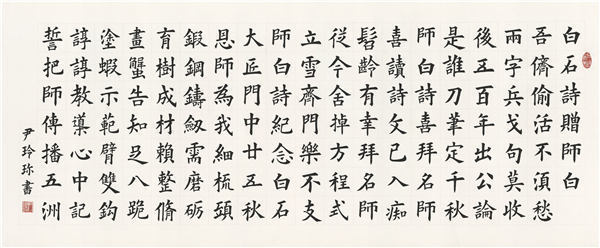 白石詩贈師白
吾儕偷活不湏愁
兩字兵戈句莫收
後五百年出公論
是誰刀筆定千秋
師白詩喜拜名師
喜讀詩文已入痴
髫齡有幸拜名師
從今舍掉方程式
立雪齋門樂不支
師白詩紀念白石
大匠門中廿五秋
恩師為我細梳頭
鍛鋼鑄劔需磨砺
育樹成材賴整脩
畫蟹告知足八跪
塗蝦示範臂雙鈎
諄諄教導心中記
誓把師傳播五洲
尹玲珎書